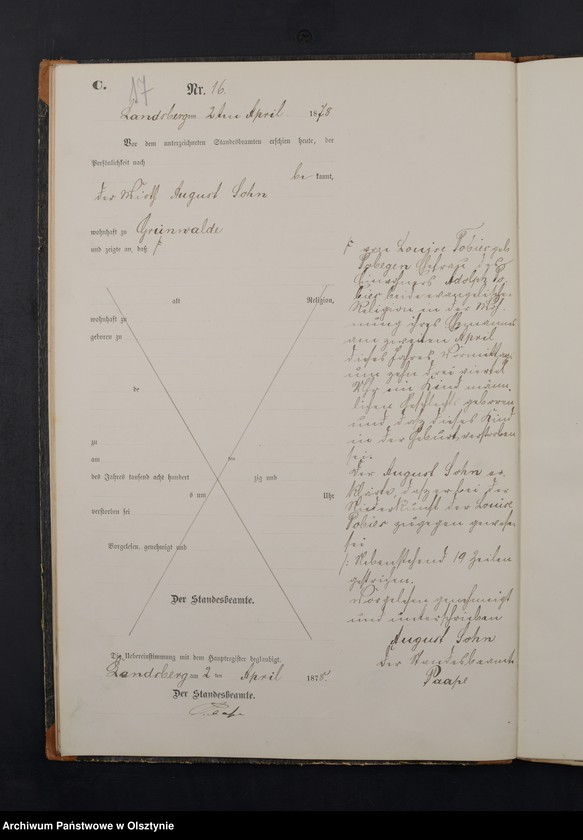 C.
17
Nr. 16.
Landsberg am 2ten April 1878
Vor dem unterzeichneten Standesbeamten erschien heute, der
Persönlichkeit nach
be kannt,
der Wirth August Sohn
wohnhaft zu Grünwalde
und zeigte an, daß
alt Religion,
wohnhaft zu
geboren zu
de
zu
am
des Jahres tausend acht hundert zig und
s um Uhr
verstorben sei
Vorgelesen, genehmigt und
Der Standesbeamte.
Die Uebereinstimmung mit dem Hauptregister beglaubigt.
Landsberg am 2 ten April 1878.
Der Standesbeamte.
Paape
Louise Tobies geb
Ehefrau des
Einwohners Adolph To-
bies beide evangelischer
Religion in der Woh-
nung ihres Ehemannes
am zweiten April
dieses Jahres Vormittags
um zehn drei viertel
Uhr ein Kind männ-
lichen Geschlechts geboren
und daß dieses Kind
in der Geburt verstorben
sei.
Der August Sohn er-
klärte, daß er bei der
Niederkunft der Louise
Tobies zugegen gewesen
sei
Nebenstehend 19 Zeilen
gestrichen.
Vorgelesen genehmigt
und unterschrieben
August Sohn
Der Standesbeamte
Paape
Archiwum Państwowe w Olsztynie